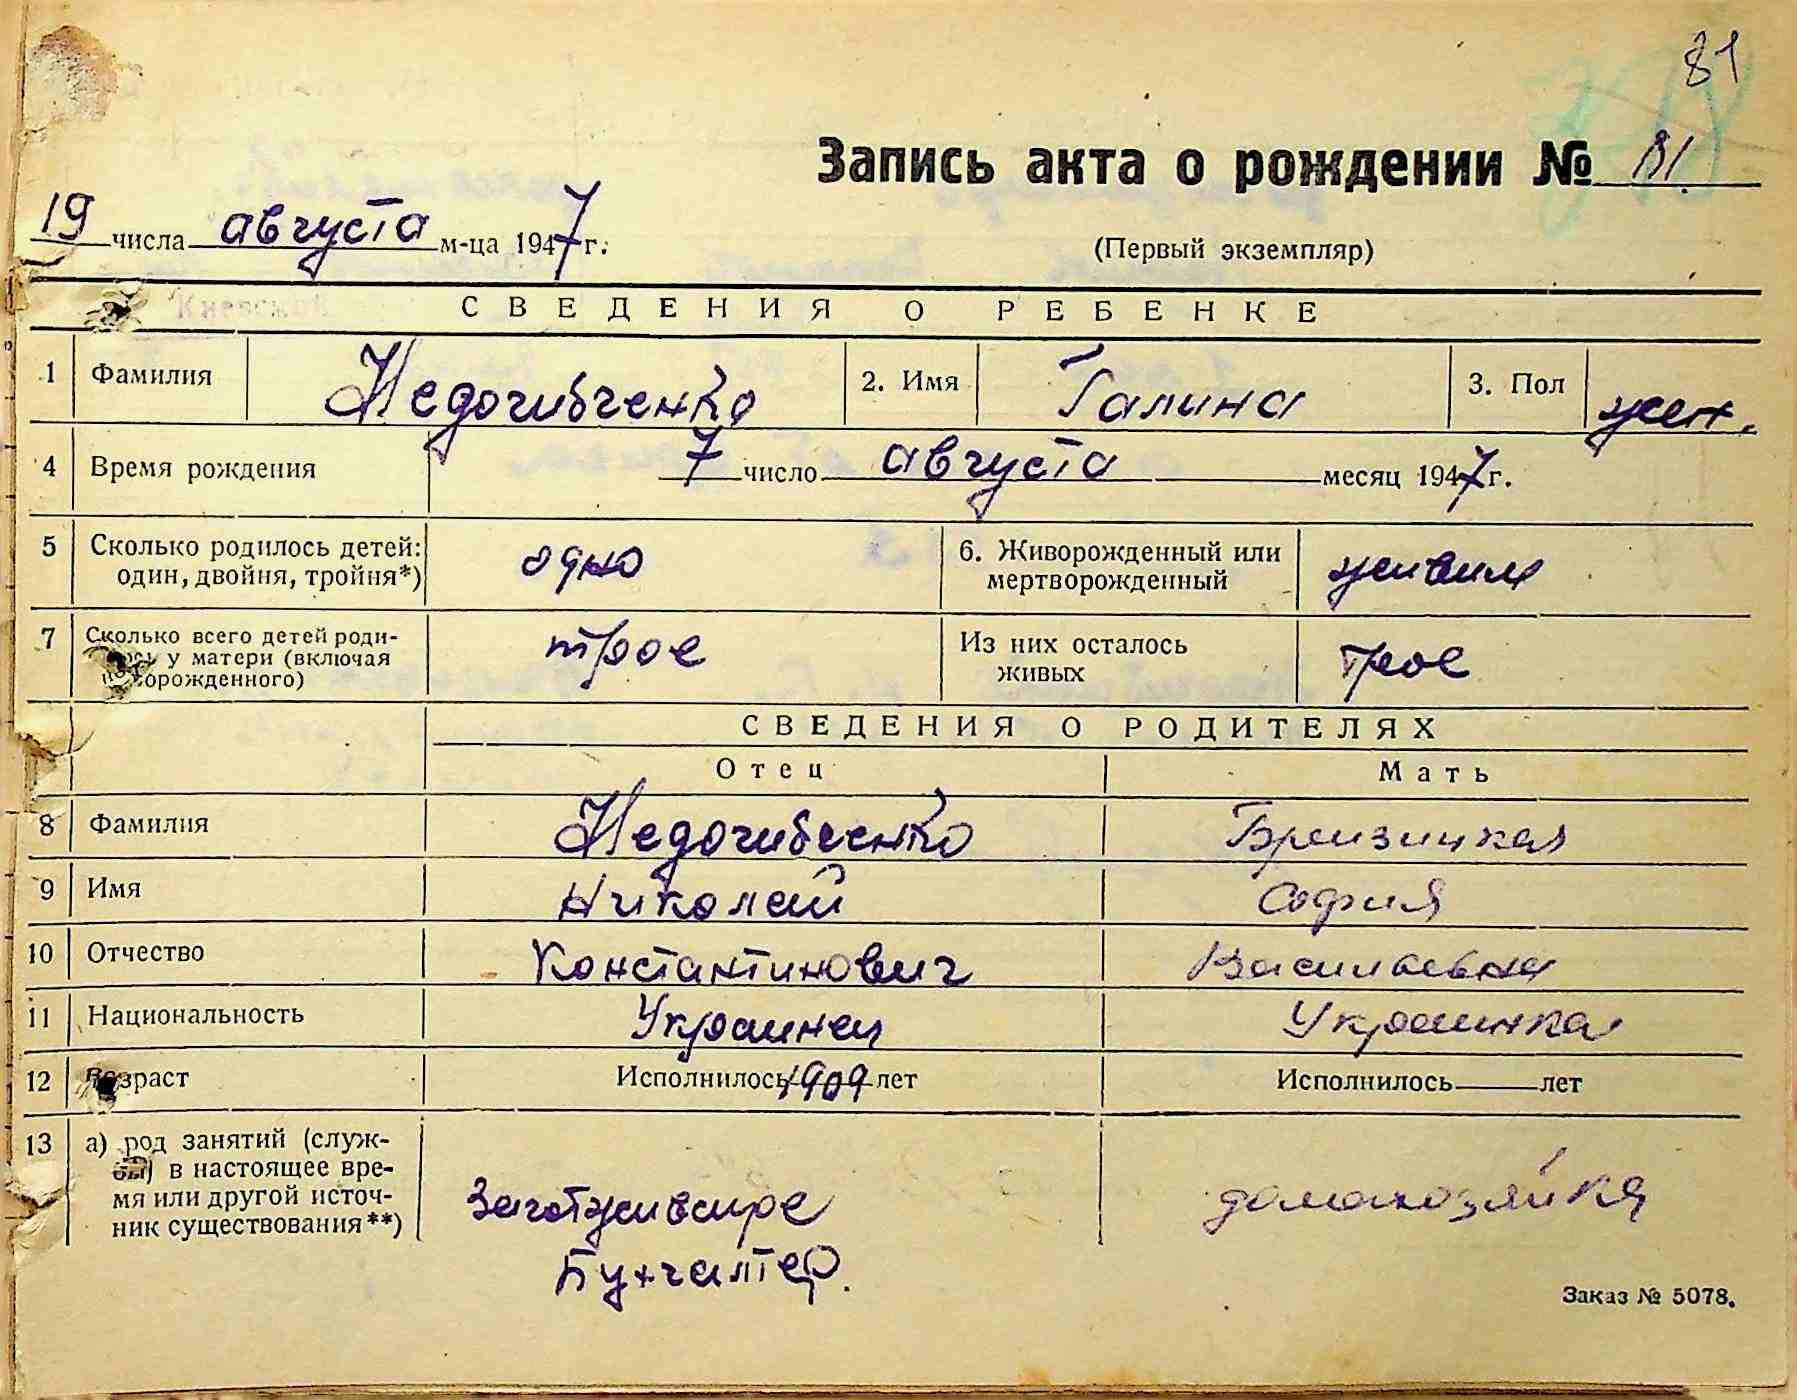 81
Запись акта о рождении № 81.
19 числа августа м-ца 1947 г.
(Первый экземпляр)
СВЕДЕНИЯ О РЕБЕНКЕ
Киевской
1 Фамилия Недогибченко 2. Имя Галина 3. Пол жен.
4 Время рождения 7 число августа месяц 1947 г.
5 Сколько родилось детей: один, двойня, тройня*) одно 6. Живорожденный или мертворожденный живим
7 Сколько всего детей роди-
у матери (включая
орожденного) трое Из них осталось живых трое
СВЕДЕНИЯ О РОДИТЕЛЯХ
Отец Мать
8 Фамилия Недогибченко Брензицкая
9 Имя Николай София
10 Отчество Константинович Васильевна
11 Национальность Украинец Украинка
12 Возраст Исполнилось 1909 лет Исполнилось лет
13 а) род занятий (служ-
бы) в настоящее вре-
мя или другой источ-
ник существования**)
Заготживсире
Бухгалтер.
домохозяйка
Заказ № 5078.